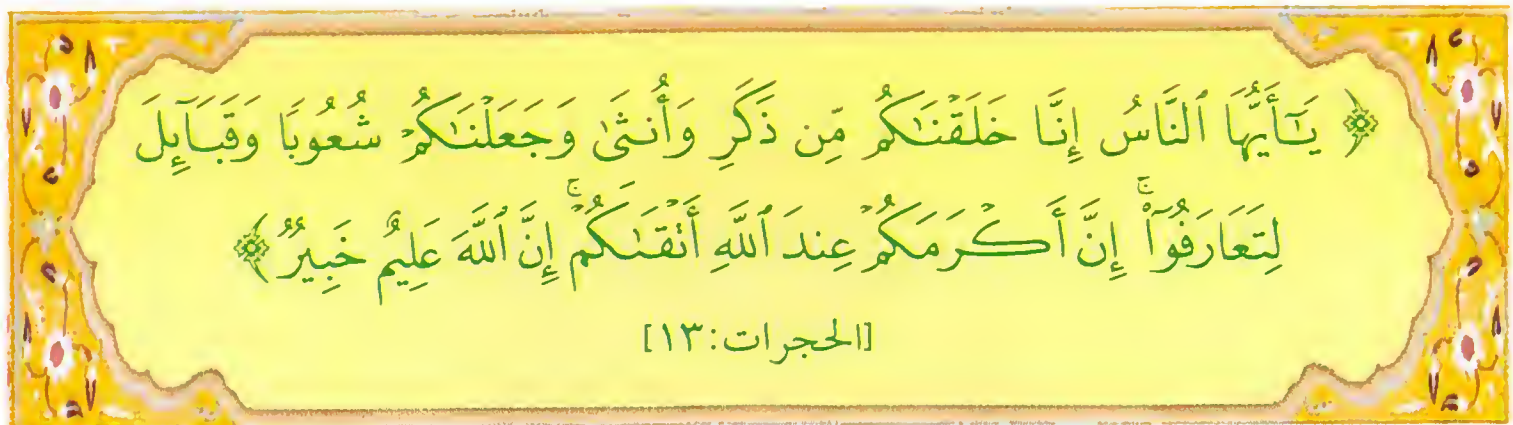 ﴿ يَـٰٓأَيُّهَا ٱلنَّاسُ إِنَّا خَلَقْنَـٰكُم مِّن ذَكَرٍ وَأُنثَىٰ وَجَعَلْنَـٰكُمْ شُعُوبًا وَقَبَآئِلَ
لِتَعَارَفُوٓا۟ ۚ إِنَّ أَكْرَمَكُمْ عِندَ ٱللَّهِ أَتْقَىٰكُمْ ۚ إِنَّ ٱللَّهَ عَلِيمٌ خَبِيرٌ ﴾
[الحجرات: ١٣]